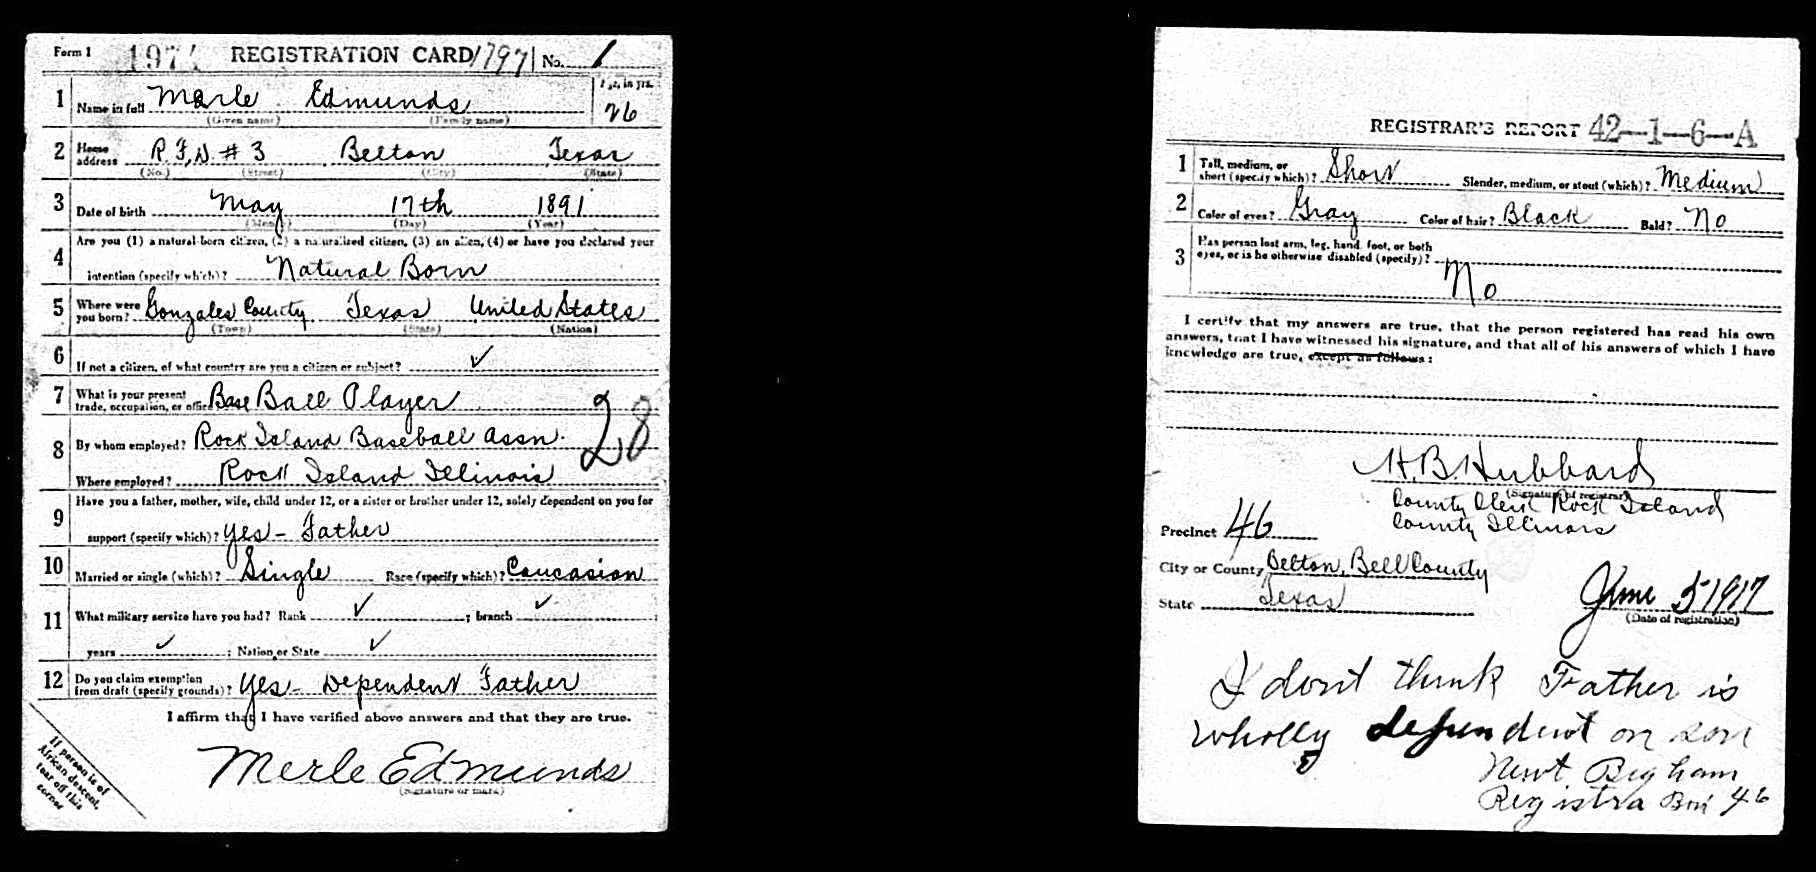 Form 1 197 REGISTRATION CARD 1797 No. 1
1 Name in full Merle Edmunds Age, in yrs. 26
(Given name) (Family name)
2 Home address R.F.D. # 3 Belton Texas
(No.) (Street) (City) (State)
3 Date of birth May 17th 1891
(Month) (Day) (Year)
4 Are you (1) a natural-born citizen, (2) a naturalized citizen, (3) an alien, (4) or have you declared your
intention (specify which)? Natural Born
5 Where were you born? Gonzales County Texas United States
(Town) (State) (Nation)
6 If not a citizen, of what country are you a citizen or subject? ✓
7 What is your present trade, occupation, or office? Base Ball Player 28
8 By whom employed? Rock Island Baseball Assn.
Where employed? Rock Island Illinois
9 Have you a father, mother, wife, child under 12, or a sister or brother under 12, solely dependent on you for
support (specify which)? Yes - Father
10 Married or single (which)? Single Race (specify which)? Caucasian
11 What military service have you had? Rank ✓ ; branch ✓ ;
years ✓ ; Nation or State ✓
12 Do you claim exemption from draft (specify grounds)? Yes - Dependent Father
I affirm that I have verified above answers and that they are true.
Merle Edmunds
(Signature or mark)
If person is of
African descent,
tear off this
corner
REGISTRAR'S REPORT 42-1-6-A
1 Tall, medium, or short (specify which)? Short Slender, medium, or stout (which)? Medium
2 Color of eyes? Gray Color of hair? Black Bald? No
3 Has person lost arm, leg, hand, foot, or both
eyes, or is he otherwise disabled (specify)? No
I certify that my answers are true, that the person registered has read his own
answers, that I have witnessed his signature, and that all of his answers of which I have
knowledge are true, except as follows:
H.B. Hubbard
(Signature of registrar)
County Clerk Rock Island
County Illinois
Precinct 46
City or County Belton, Bell County
State Texas June 5 1917
(Date of registration)
I dont think Father is
wholly dependent on son
Newt Bigham
Registra 46